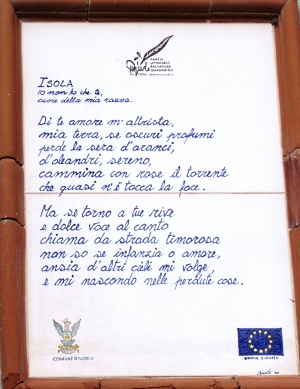 PARCO
LETTERARIO
SALVATORE
QUASIMODO
ISOLA
Io non ho che te,
cuore della mia razza.
Di te amore m'attrista,
mia terra, se oscuri profumi
perde la sera d'aranci,
d'oleandri, sereno,
cammina con rose il torrente
che quasi n'è tocca la foce.
Ma se torno a tue rive
e dolce voce al canto
chiama da strada timorosa
non so se infanzia o amore,
ansia d'altri cieli mi volge,
e mi nascondo nelle perdute cose.
COMUNE DI MODICA
UNIONE EUROPEA